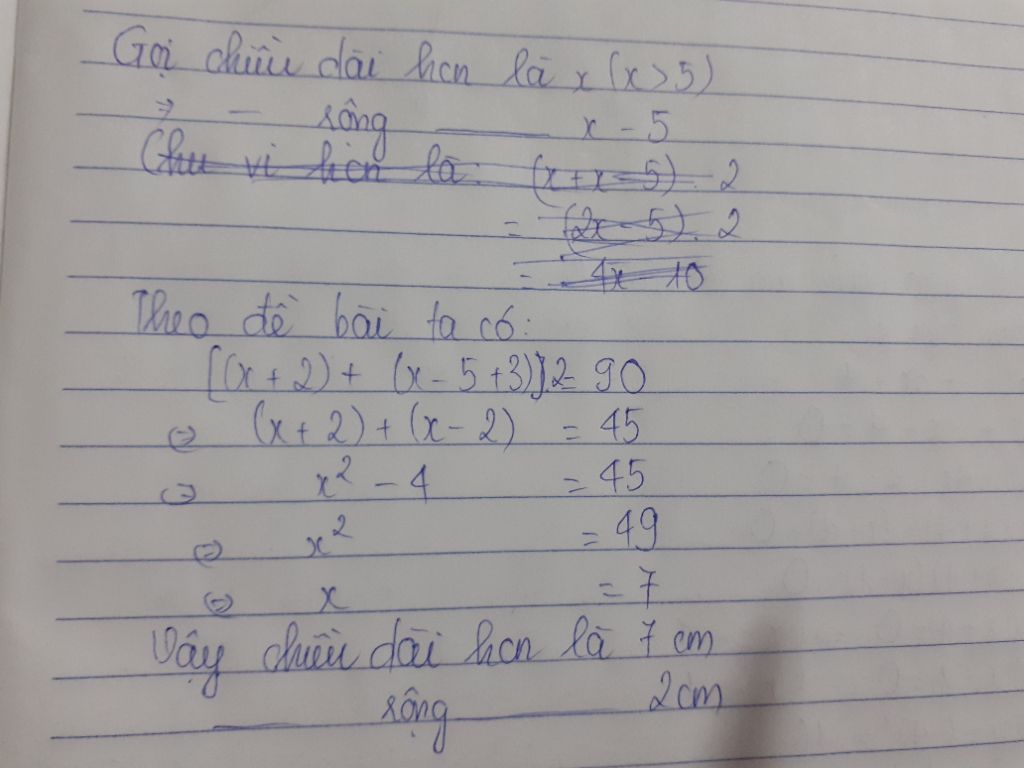 Gọi chiều dài hcn là x (x > 5)
⇒ — rộng —— x - 5
Chu vi hcn là: (x + x - 5) . 2
= (2x - 5) . 2
= 4x - 10
Theo đề bài ta có:
[(x + 2) + (x - 5 + 3)].2 = 90
⇔ (x + 2) + (x - 2) = 45
⇔ x² - 4 = 45
⇔ x² = 49
⇔ x = 7
Vậy chiều dài hcn là 7 cm
—— rộng 2cm